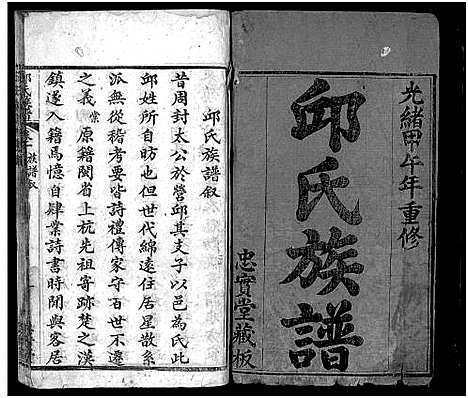 光緒甲午年重修
邱氏族譜
忠實堂藏板
邱氏族譜叙
昔周封太公於營邱其支子以邑為氏此
邱姓所自昉也但世代綿遠住居星散系
派無從稽考要皆詩禮傳家守百世不遷
之義棠原籍閩省上杭先祖寄跡楚之漢
鎮遂入籍焉憶自肄業詩書時聞與客居
族譜叙